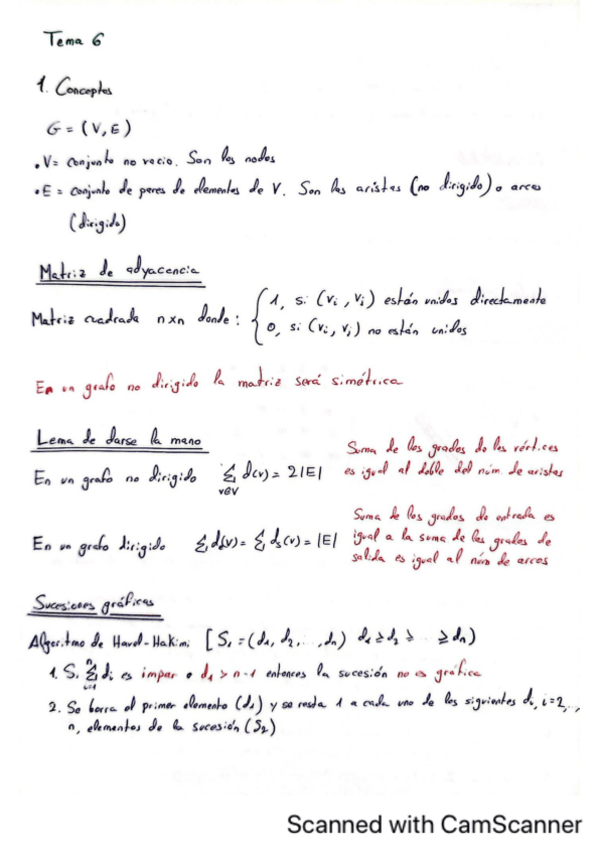 Tema 6
1. Conceptos
G = (V, E)
• V = conjunto no vacio. Son los nodos
• E = conjunto de pares de elementos de V. Son las aristas (no dirigido) o arcos
(dirigido)
Matriz de adyacencia
Matriz cuadrada nxn donde: { 1, si (vi, vj) están unidos directamente
0, si (vi, vj) no están unidos
En un grafo no dirigido la matriz será simétrica
Lema de darse la mano
En un grafo no dirigido ∑ d(v) = 2|E|
v∈V
Suma de los grados de los vértices
es igual al doble del núm de aristas
En un grafo dirigido ∑ de(v) = ∑ ds(v) = |E|
Suma de los grados de entrada es
igual a la suma de los grados de
salida es igual al núm de arcos
Sucesiones gráficas
Algoritmo de Havel-Hakimi [S1 = (d1, d2, ..., dn) d1 ≥ d2 ≥ ... ≥ dn)
1. Si ∑ di es impar o d1 > n-1 entonces la sucesión no es gráfica
2. Se borra el primer elemento (d1) y se resta 1 a cada uno de los siguientes di, i=2, ..,
n, elementos de la sucesión (S2)
Scanned with CamScanner